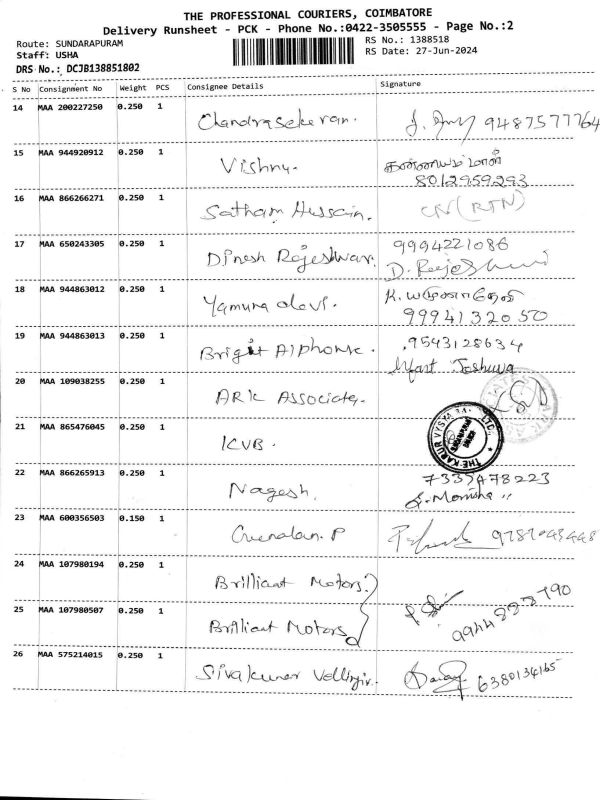 THE PROFESSIONAL COURIERS, COIMBATORE
Delivery Runsheet - PCK - Phone No.:0422-3505555 - Page No.:2
Route: SUNDARAPURAM
RS No.: 1388518
Staff: USHA
RS Date: 27-Jun-2024
DRS No.: DCJB138851802
S No Consignment No Weight PCS Consignee Details Signature
14 MAA 200227250 0.250 1 Chandrasekeran. 9487577764
15 MAA 944920912 0.250 1 Vishnu.
8012959293
16 MAA 866266271 0.250 1 Satham Hussain. CN (RTN)
17 MAA 650243305 0.250 1 Dinesh Rajeshwar. 9994221086
D.
18 MAA 944863012 0.250 1 Yamuna devi. K. யமுனாதேவி
9994132050
19 MAA 944863013 0.250 1 Brigit Alphonse. .9543128634
Infant Joshuva
20 MAA 109038255 0.250 1 ARK Associates.
21 MAA 865476045 0.250 1 KVB. THE KARUR VYSYA BANK LTD.
22 MAA 866265913 0.250 1 Nagesh.
S. Monisha
23 MAA 600356503 0.150 1 Gunalan. P
24 MAA 107980194 0.250 1 Brilliant Motors.
25 MAA 107980507 0.250 1 Brilliant Motors
26 MAA 575214015 0.250 1 Sivakumar Vellingiri. 6380134165